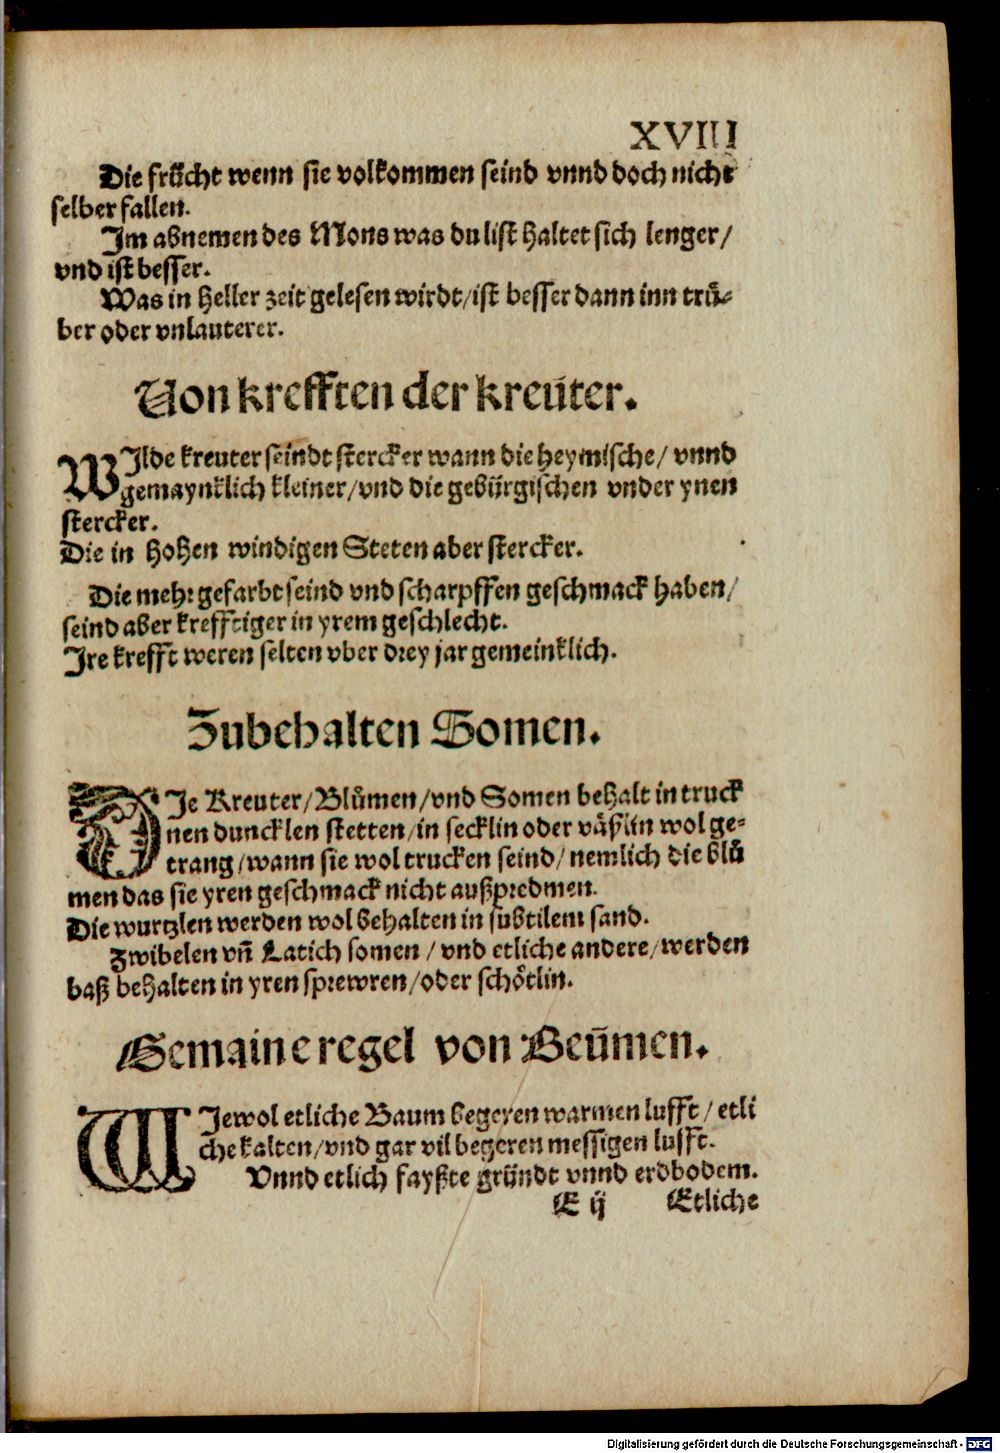 XVIII
Die frücht wenn sie volkommen seind vnnd doch nicht
selber fallen.
Im abnemen des Mons was du list haltet sich lenger/
vnd ist besser.
Was in heller zeit gelesen wirdt/ist besser dann inn trů-
ber oder vnlauterer.
Von krefften der kreüter.
WIlde kreuter seindt stercker wann die heymische/ vnnd
gemaynklich kleiner/vnd die gebürgischen vnder ynen
stercker.
Die in hohen windigen Steten aber stercker.
Die mehr gefarbt seind vnd scharpffen geschmack haben/
seind aber krefftiger in yrem geschlecht.
Ire krefft weren selten vber drey jar gemeinklich.
Zubehalten Somen.
DIe Kreuter/Blůmen/vnd Somen behalt in truck
nen duncklen stetten/in secklin oder väßlin wol ge-
trang/wann sie wol trucken seind/nemlich die blů
men das sie yren geschmack nicht außpredmen.
Die wurtzlen werden wol behalten in subtilem sand.
Zwibelen vn̄ Latich somen/vnd etliche andere/werden
baß behalten in yren sprewren/oder schötlin.
Gemaine regel von Beümen.
WIewol etliche Baum begeren warmen lufft/etli
che kalten/vnd gar vil begeren messigen lufft.
Vnnd etlich fayßte gründt vnnd erdbodem.
E ij Etliche
Digitalisierung gefördert durch die Deutsche Forschungsgemeinschaft - DFG